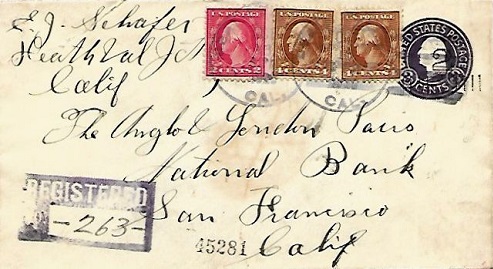 E. J. Schafer
Feathval Jct
Calif
U.S. POSTAGE
CENTS
U.S. POSTAGE
CENTS
U.S. POSTAGE
CENTS
UNITED STATES POSTAGE
CENTS
CAL.
CAL.
The Anglo & London Paris
National Bank
San Francisco
Calif
REGISTERED
-263-
45281